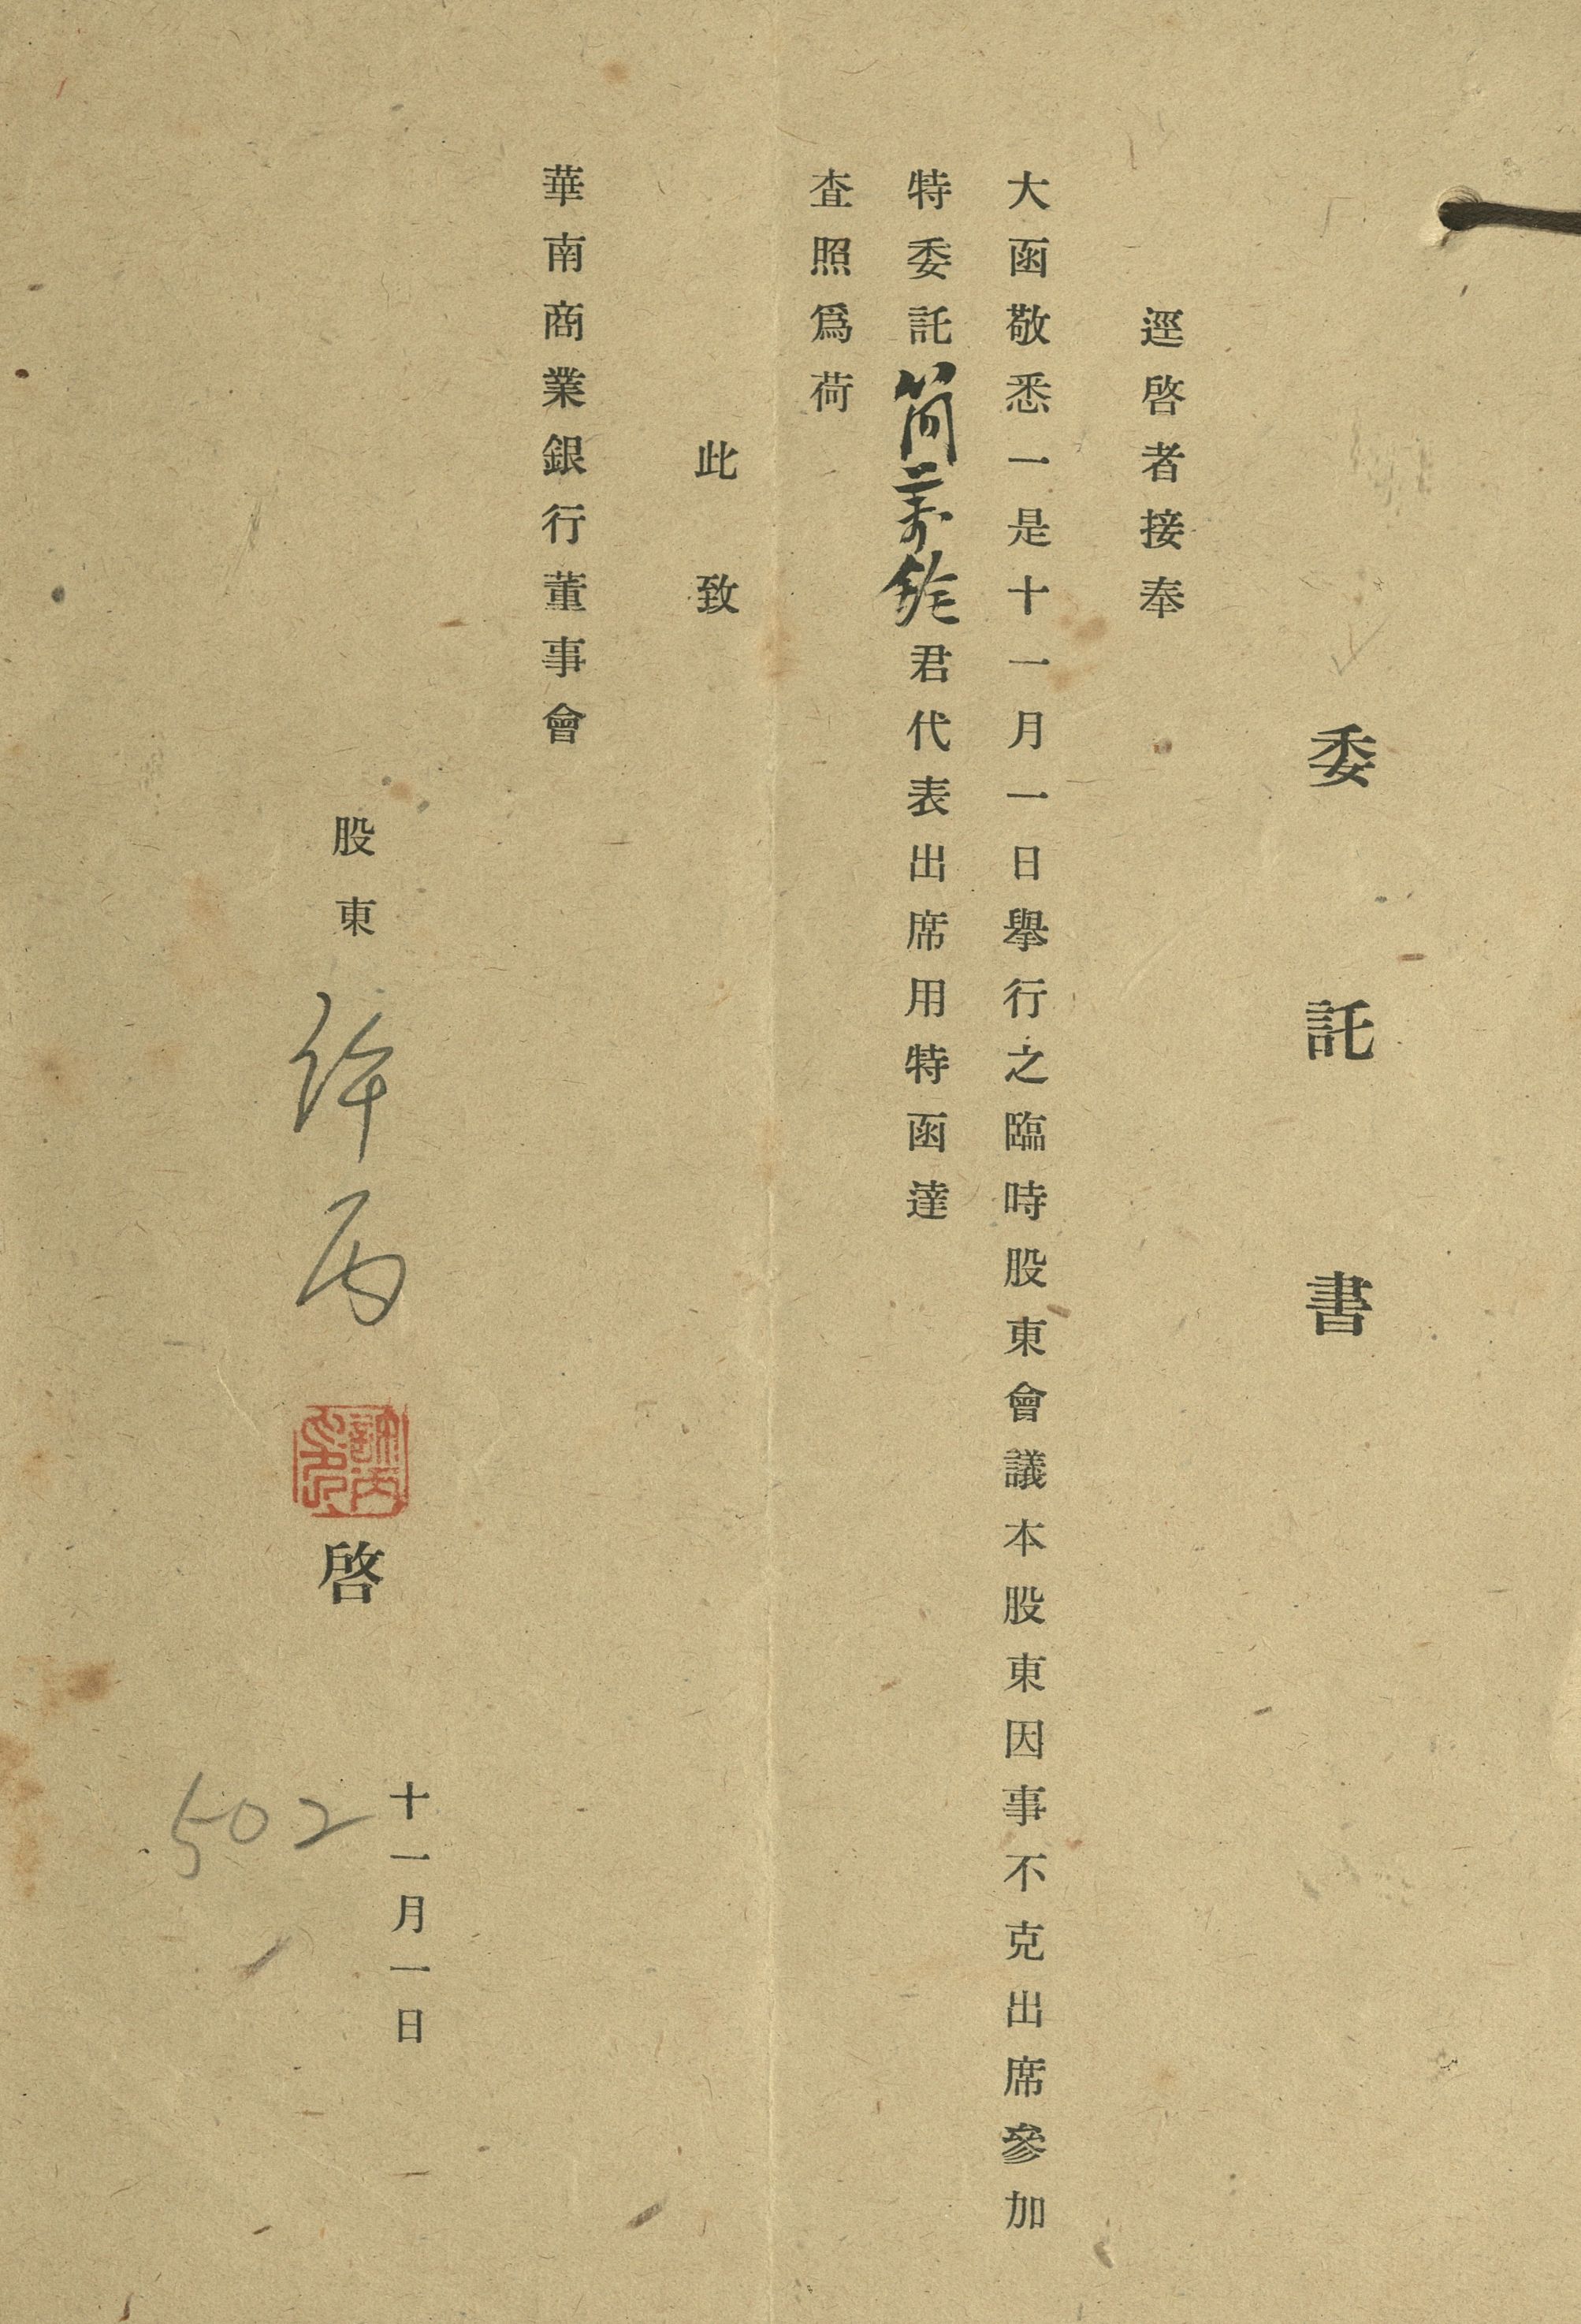 委託書
逕啓者接奉
大函敬悉一是十一月一日舉行之臨時股東會議本股東因事不克出席參加
特委託簡萬銓君代表出席用特函達
査照爲荷
此致
華南商業銀行董事會
股東 許丙 許丙印 啓
十一月一日
502